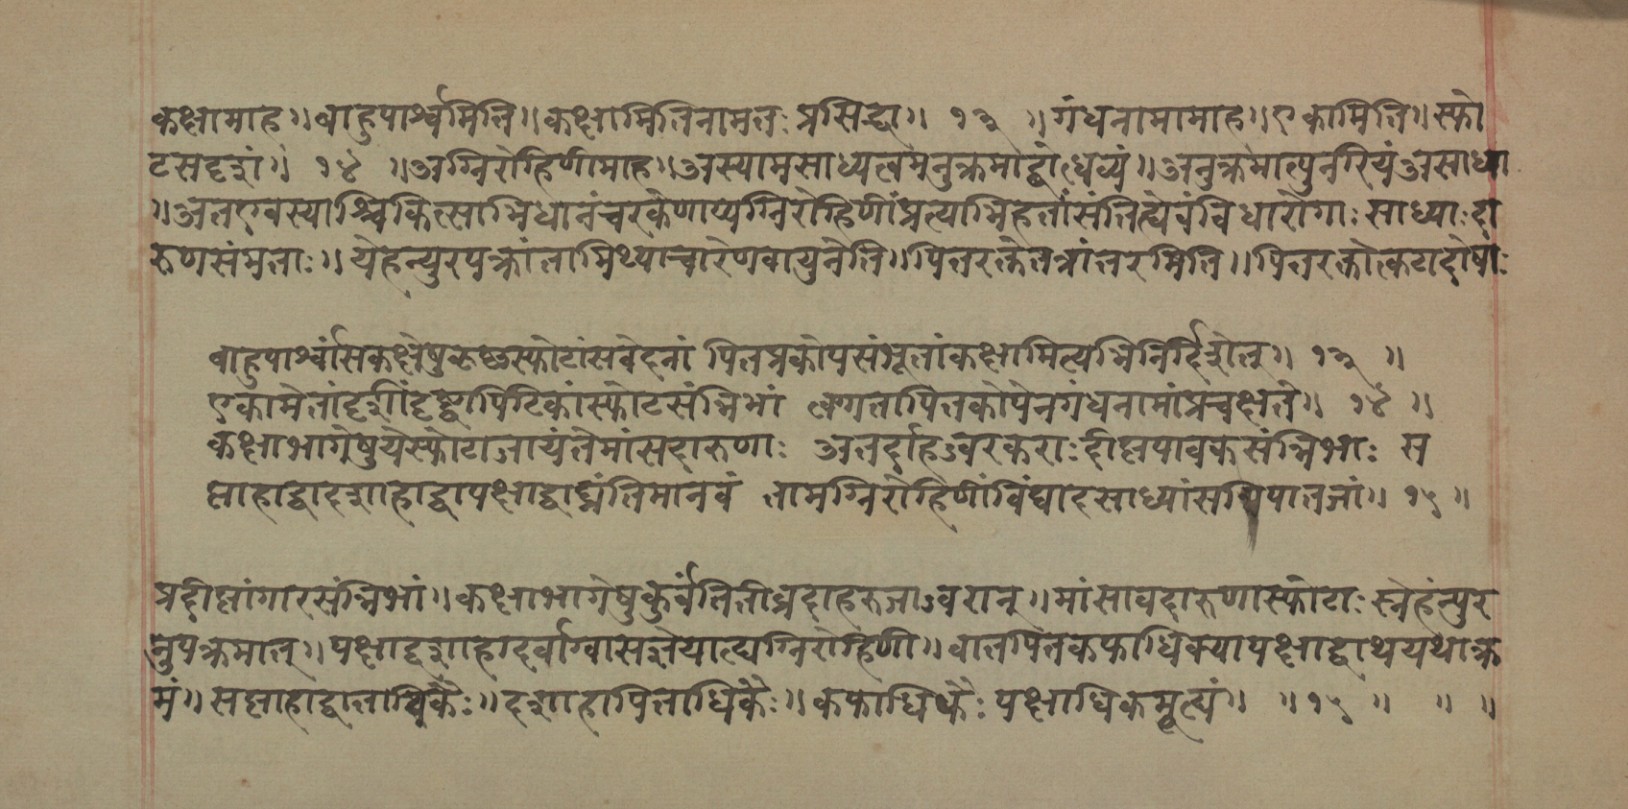 कक्षामाह॥ बाहुपार्श्वमिति॥ कक्षामितिनामतः प्रसिद्धा॥ १३ ॥ गंधनामामाह॥ एकामिति॥ स्फो
टसदृशं॥ १४ ॥ अग्निरोहिणीमाह॥ अस्यामसाध्यत्वमनुक्रमाद्बोधव्यं॥ अनुक्रमात्पुनरियंअसाध्या
॥ अतएवस्याश्चिकित्साभिधानंचरकेणाप्यग्निरोहिणींप्रत्यभिहतांसंतित्द्येवंविधारोगाः साध्याः दा
रुणसंमताः॥ येहन्युरपक्रांतामिथ्याचारेणवायुनेति॥ पित्तरक्तेतत्रांतरमिति॥ पित्तरक्तोत्कटादोषाः
बाहुपार्श्वांसकक्षेषुकृष्णस्फोटांसवेदनां पित्तप्रकोपसंभूतांकक्षामित्यभिनिर्दिशेत्॥ १३ ॥
एकामेतांदृशींदृष्ट्वापिटिकांस्फोटसंन्निभां त्वग्गतापित्तकोपेनगंधनामांप्रचक्षते॥ १४ ॥
कक्षाभागेषुयेस्फोटाजायंतेमांसदारुणाः अंतर्दाहज्वरकराः दीप्तपावकसंन्निभाः स
प्ताहाद्वादशाहाद्वापक्षाद्वाघ्नंतिमानवं तामग्निरोहिणींविंद्यादसाध्यांसन्निपातजां॥ १५ ॥
प्रदीप्तांगारसंन्निभां॥ कक्षाभागेषुकुर्वंतितीव्रदाहरुजाज्वरान्॥ मांसावदारुणास्फोटाः स्नेहंत्पुर
नुपक्रमात्॥ पक्षाद्दशाहादर्वाग्वासज्ञेयात्द्यग्निरोहिणी॥ वातपित्तकफाधिक्यापक्षाद्वाथयथाक्र
मं॥ सप्ताहाद्वाताधिकैः॥ दशाहापित्ताधिकैः॥ कफाधिकैः पक्षाधिकमृत्युं॥ ॥ १५ ॥ ॥ ॥